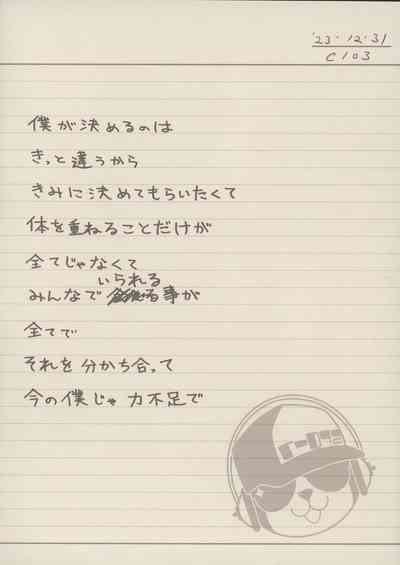 '23・12・31
C103
僕が決めるのは
きっと違うから
きみに決めてもらいたくて
体を重ねることだけが
全てじゃなくて
いられる
みんなで 事が
全てで
それを分かち合って
今の僕じゃ力不足で